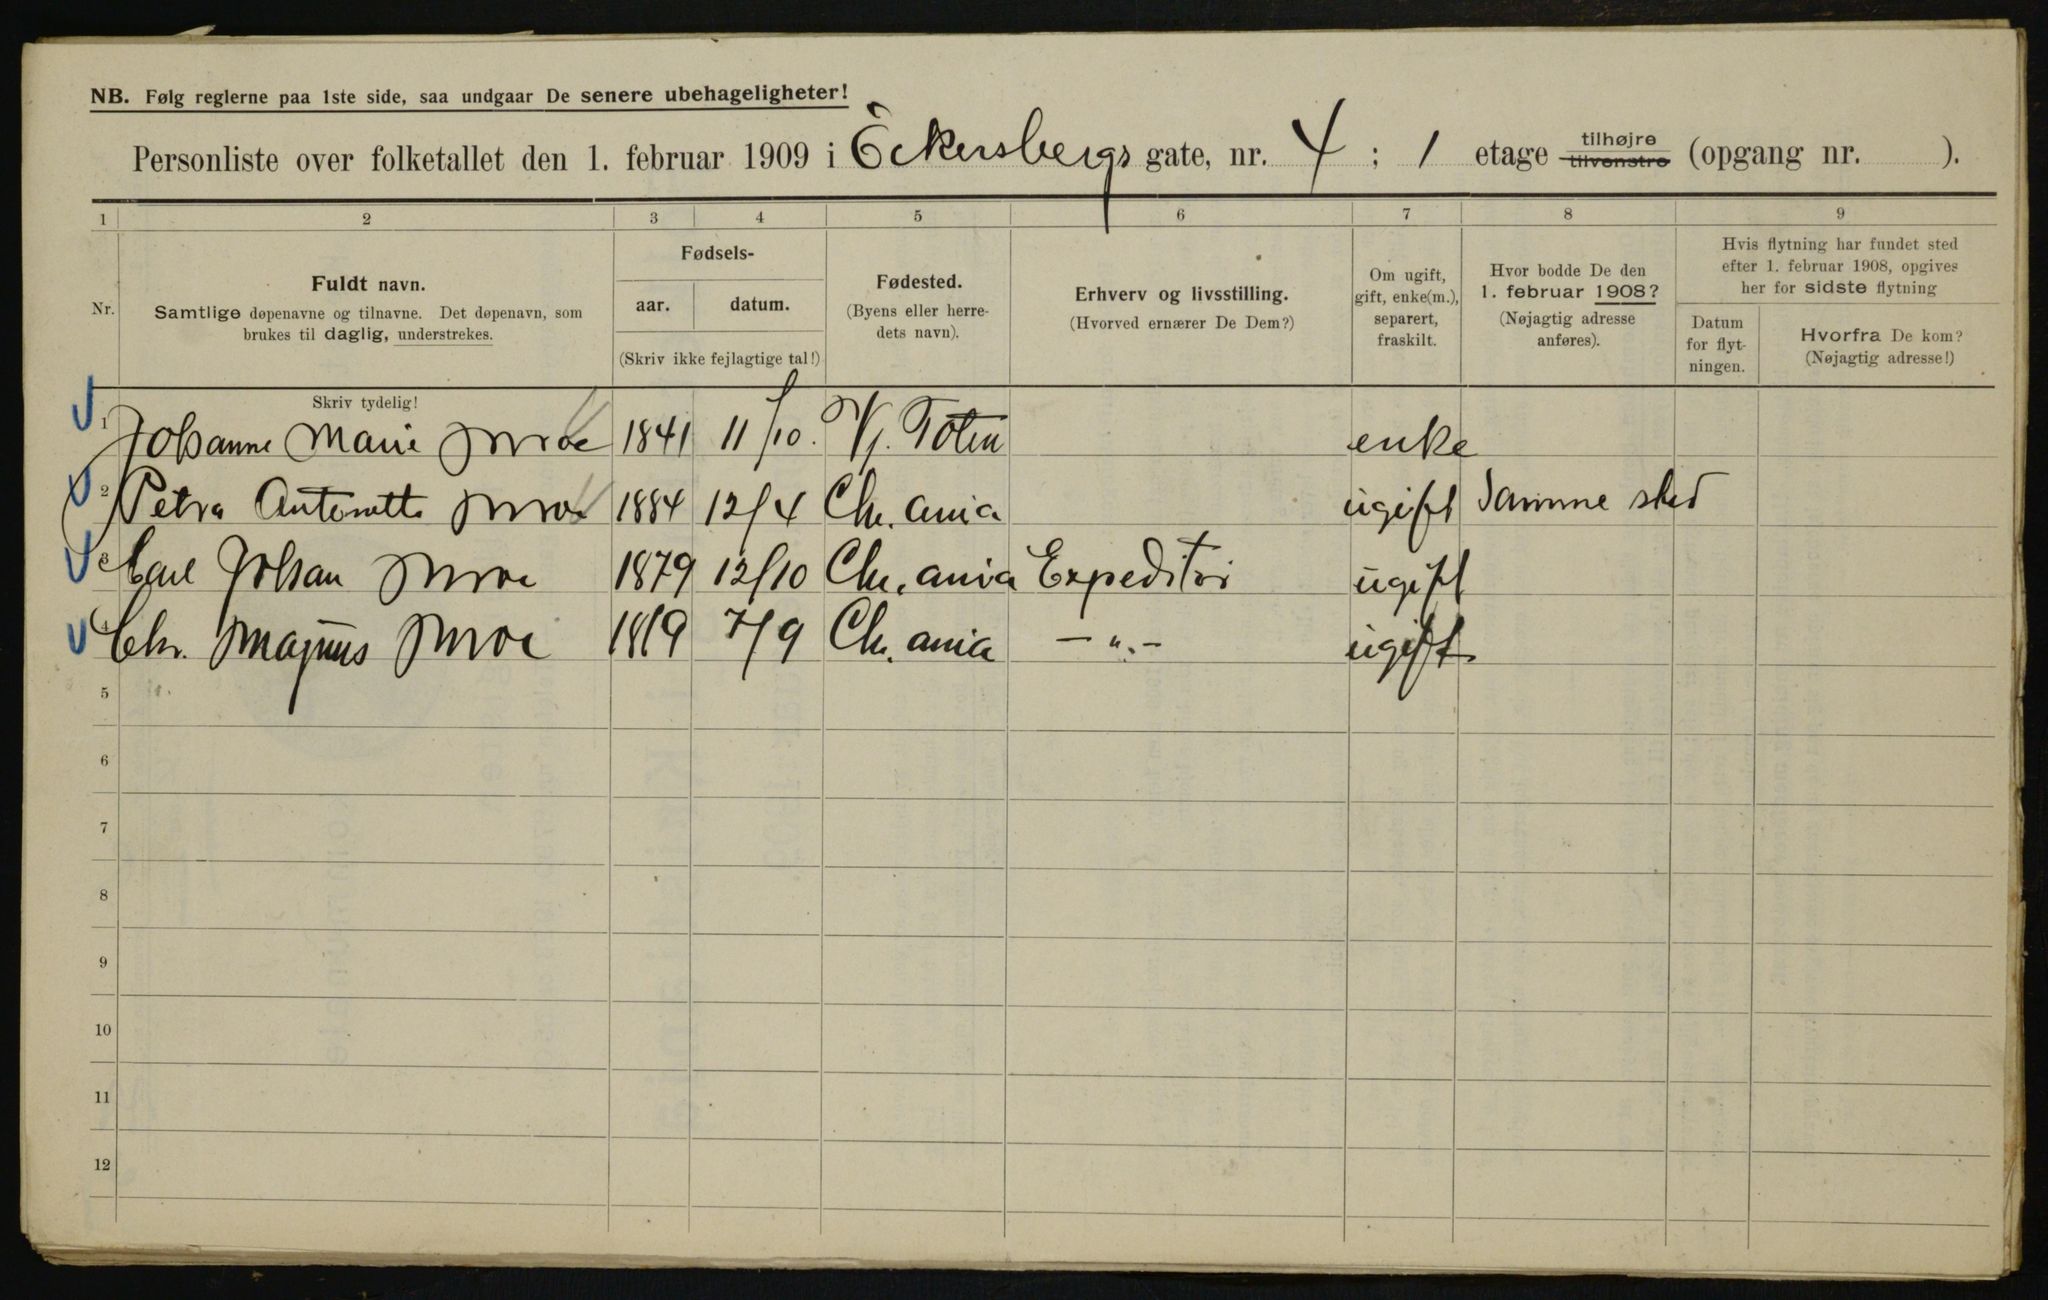 NB. Følg reglerne paa 1ste side, saa undgaar De senere ubehageligheter!
Personliste over folketallet den 1. februar 1909 i Eckersbergs gate, nr. 4 ; 1 etage tilhøjre tilvenstre (opgang nr. ).
1 2 3 4 5 6 7 8 9
Nr.
Fuldt navn.
Samtlige døpenavne og tilnavne. Det døpenavn, som
brukes til daglig, understrekes.
Fødsels-
aar. datum.
(Skriv ikke fejlagtige tal!)
Fødested.
(Byens eller herre-
dets navn).
Erhverv og livsstilling.
(Hvorved ernærer De Dem?)
Om ugift,
gift, enke(m.),
separert,
fraskilt.
Hvor bodde De den
1. februar 1908?
(Nøjagtig adresse
anføres).
Hvis flytning har fundet sted
efter 1. februar 1908, opgives
her for sidste flytning
Datum
for flyt-
ningen.
Hvorfra De kom?
(Nøjagtig adresse!)
Skriv tydelig!
1 Johanne Marie Moe 1841 11/10. V. Toten enke
2 Petra Antonette Moe 1884 12/4 Chr. ania ugift Samme sted
3 Carl Johan Moe 1879 12/10 Chr. ania Expeditør ugift
4 Chr. Magnus Moe 18 9 7/9 Chr. ania – „ – ugift
5
6
7
8
9
10
11
12